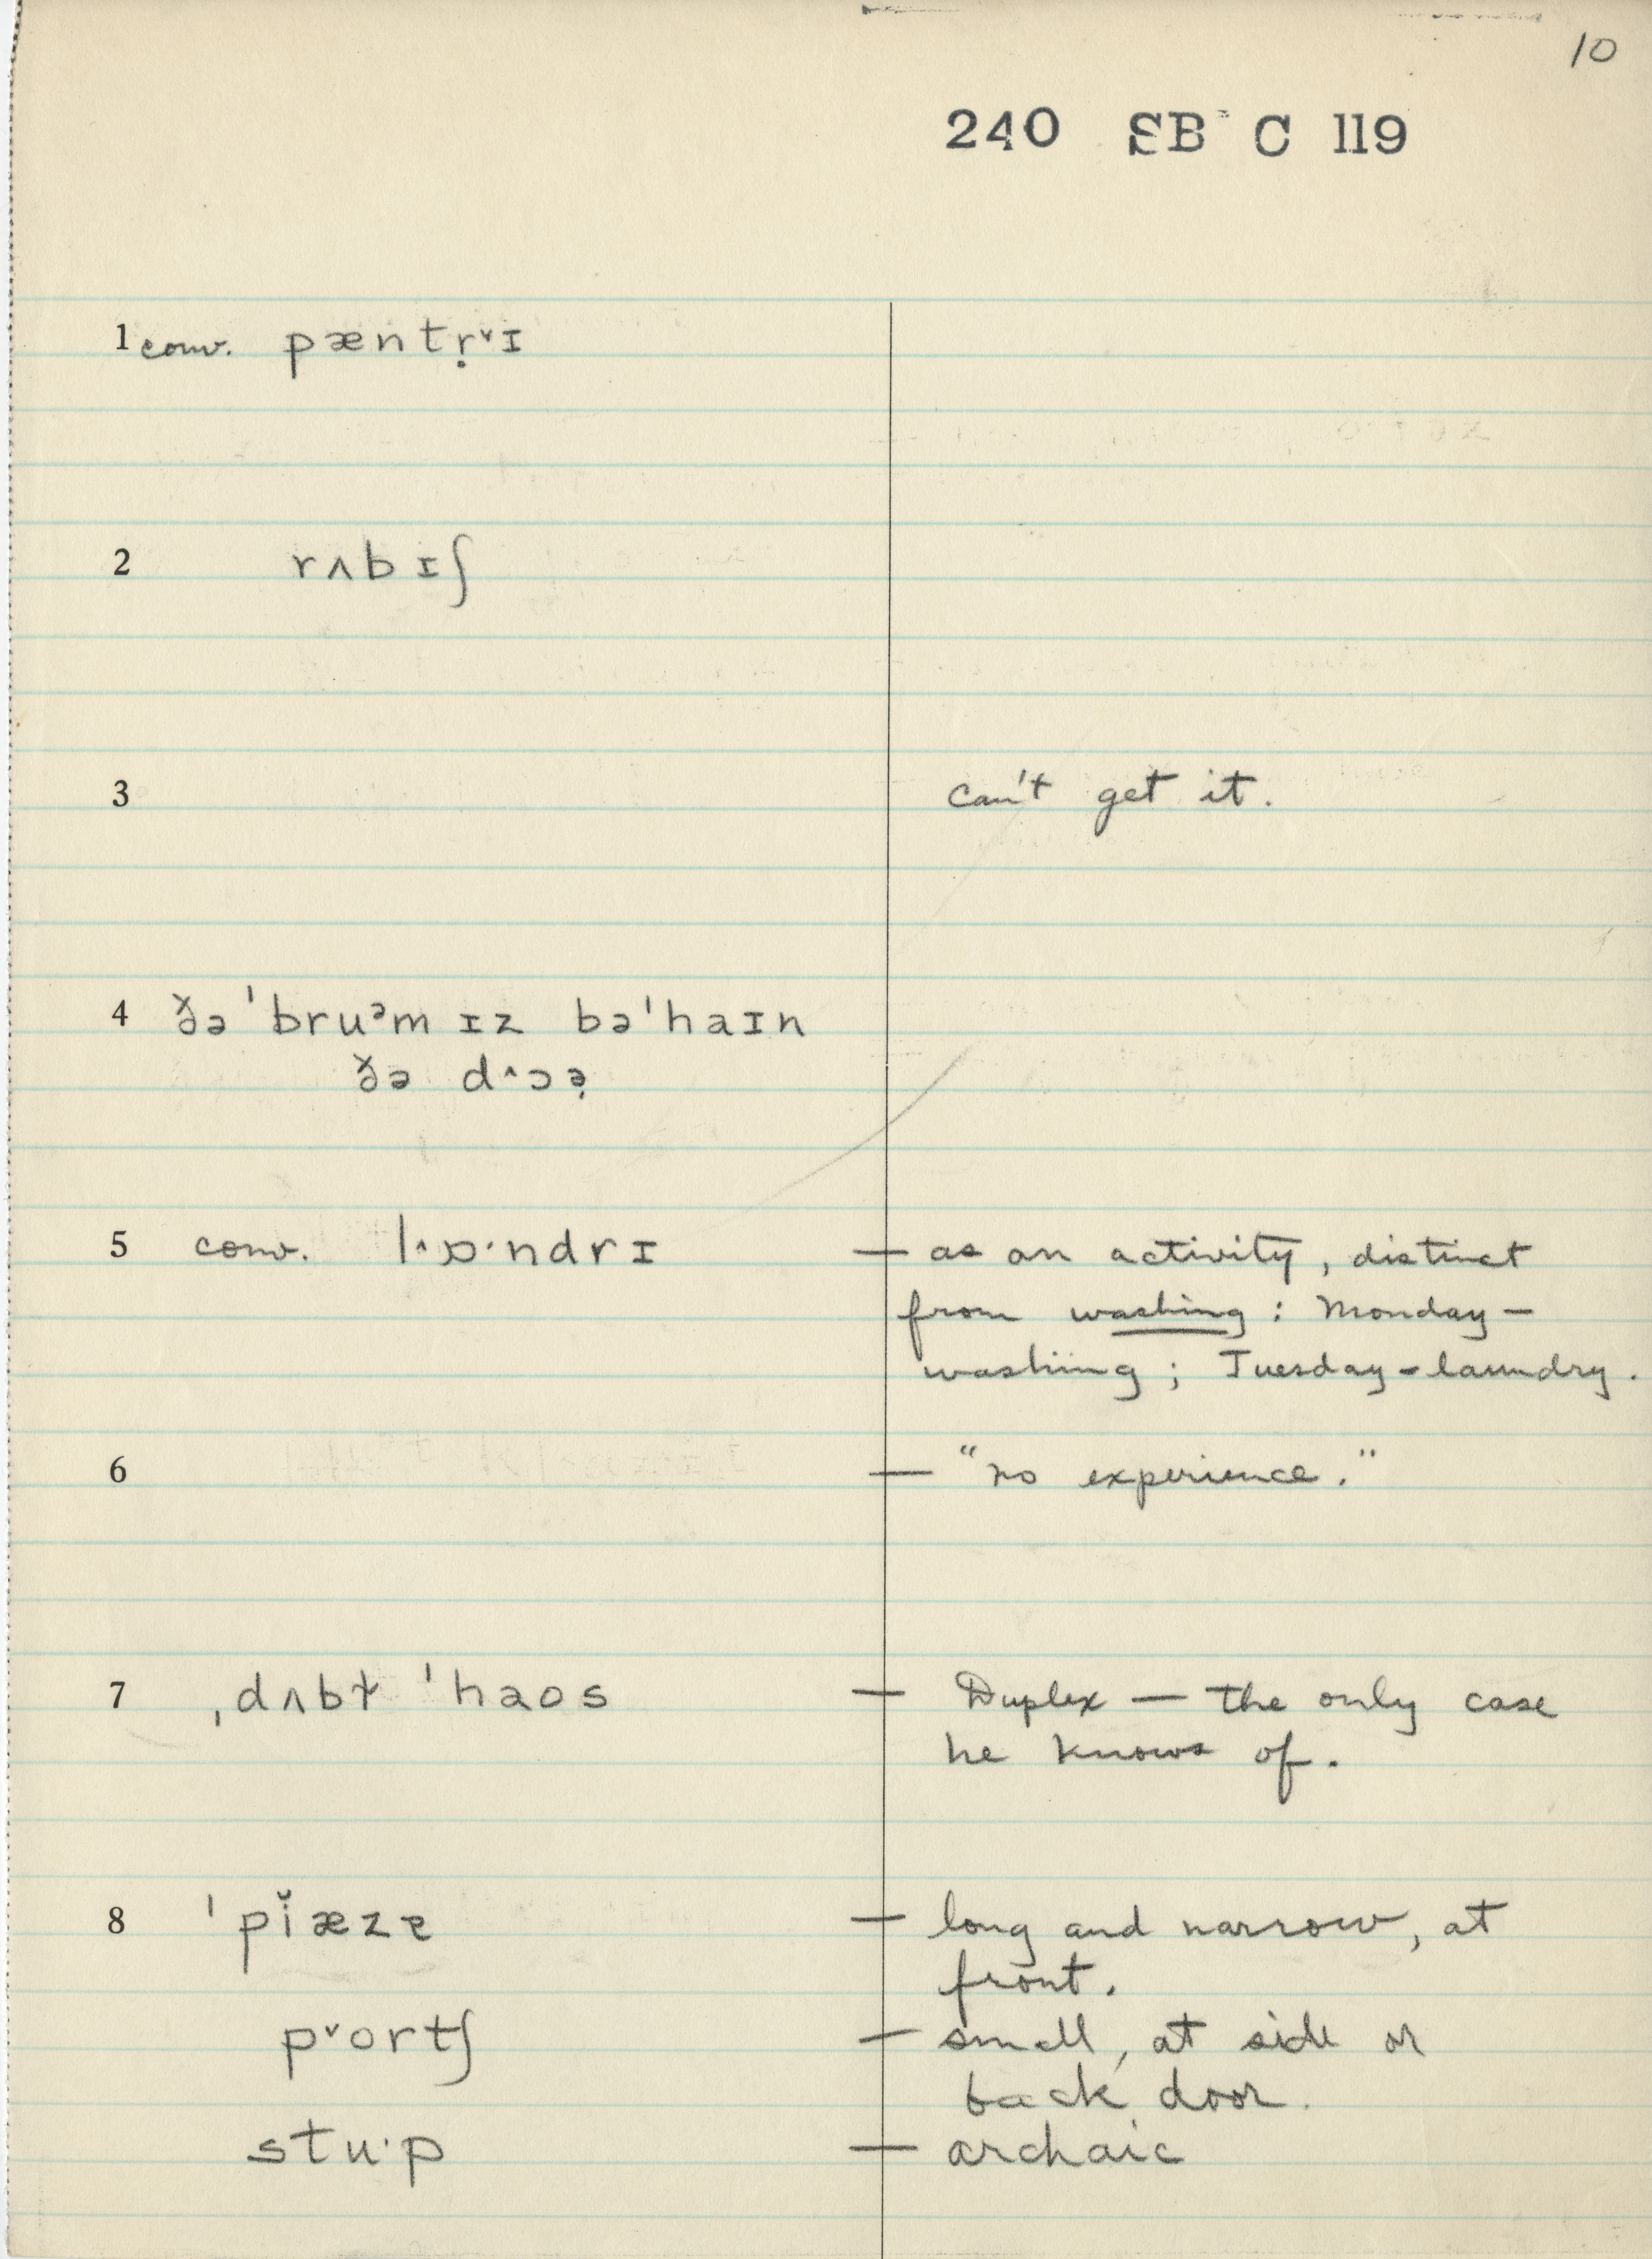 10
240 SB C 119
1 conv. pæntṛ˅ɪ
2 rʌbɪʃ
3 can't get it.
4 ðə ˈbruᵊm ɪz bəˈhaɪn
ðə d˄ɔə̣
5 conv. l˄ɒ·ndrɪ — as an activity, distinct
from washing : Monday —
washing ; Tuesday - laundry.
6 — "no experience."
7 ˌdʌbɫ ˈhaos — Duplex — the only case
he knows of.
8 ˈpĭæzɐ — long and narrow, at
front.
p˅ortʃ — small, at side or
back door.
stu·p — archaic